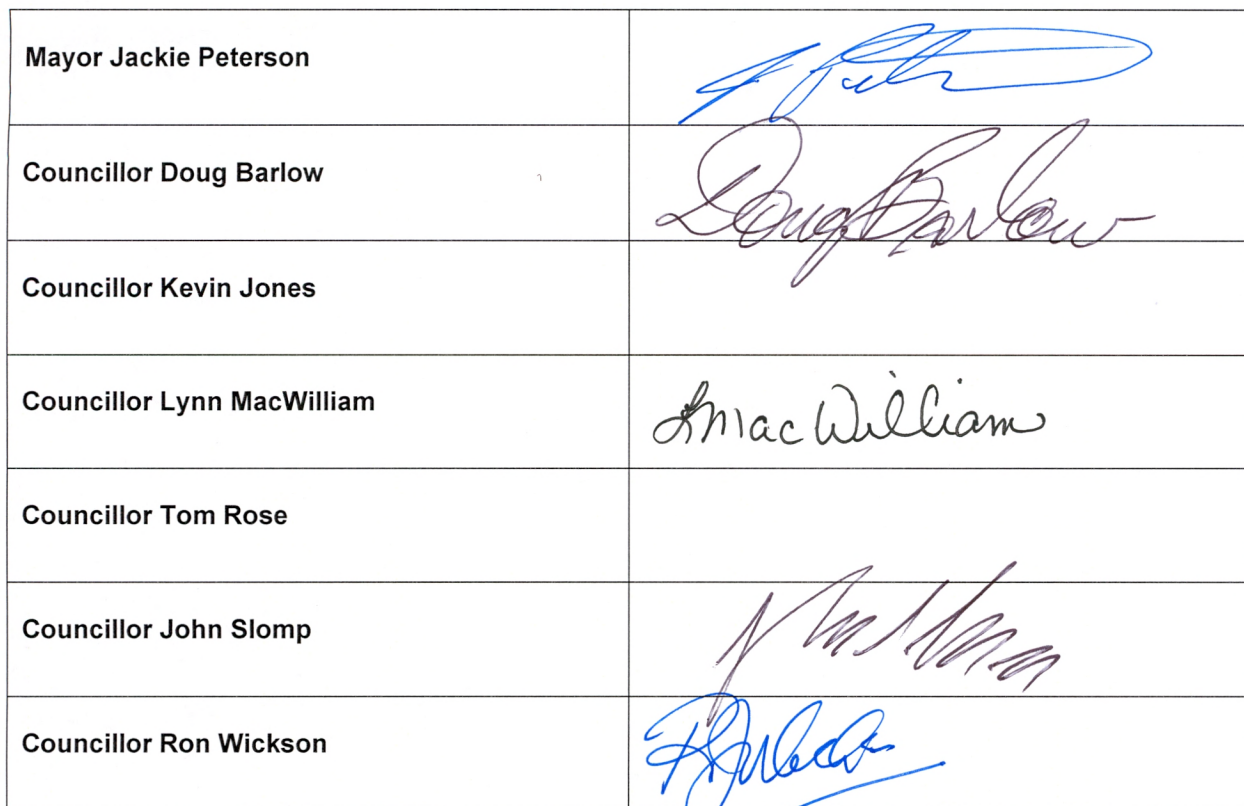 Mayor Jackie Peterson
Councillor Doug Barlow Doug Barlow
Councillor Kevin Jones
Councillor Lynn MacWilliam LMacWilliam
Councillor Tom Rose
Councillor John Slomp
Councillor Ron Wickson